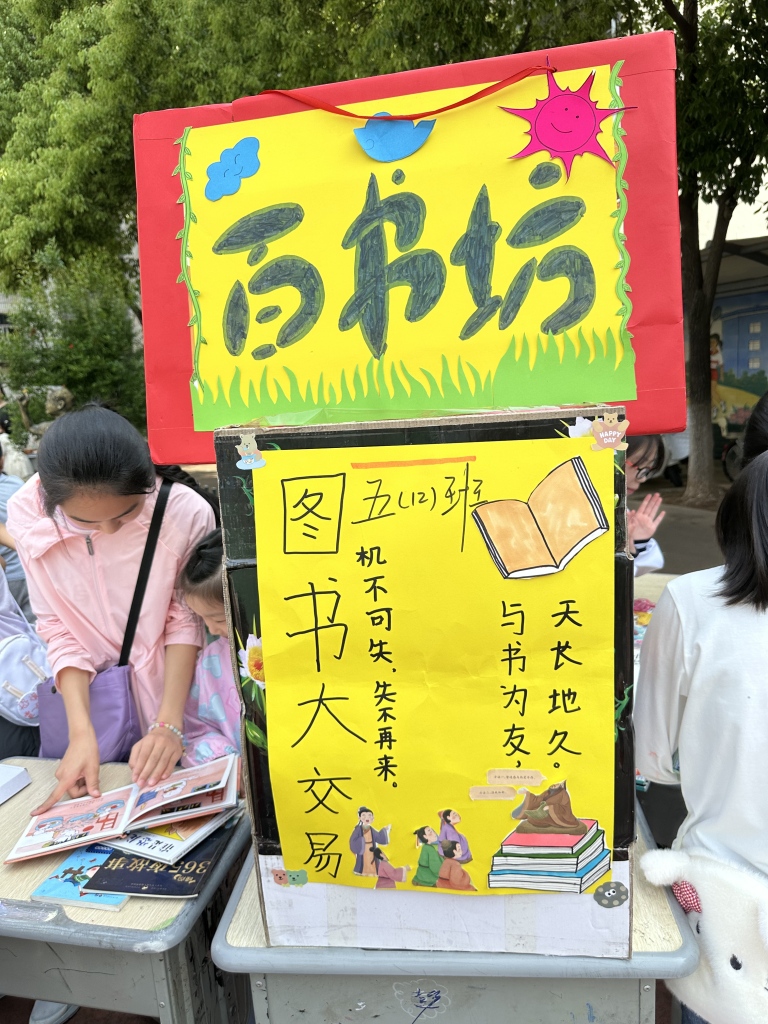 百书坊
HAPPY DAY
五(12)班
图书大交易
机不可失，失不再来。
与书为友，
天长地久。
365夜故事